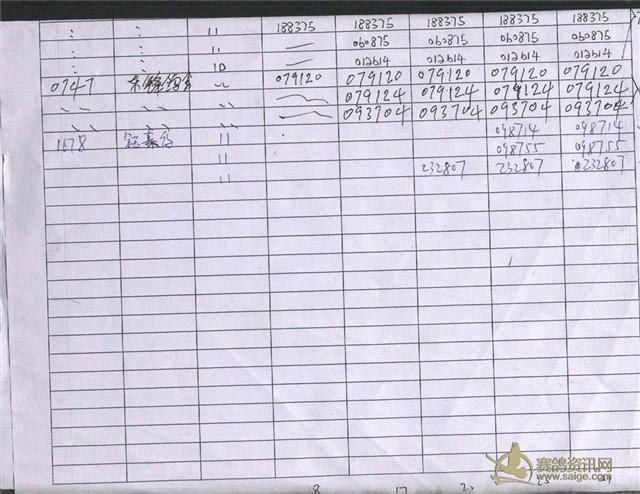 : : 11 188375 188375 188375 188375 188375
: : 11 — 060875 060875 060875 060875
: : 10 — 012614 012614 012614 012614
0747 079120 079120 079120 079120 079120
079124 079124 079124 079124
093704 093704 093704 093704
1678 11 098714 098714
11 098755 098755
11 232807 232807 232807
8 17 20
赛鸽资讯网
www.saige.com